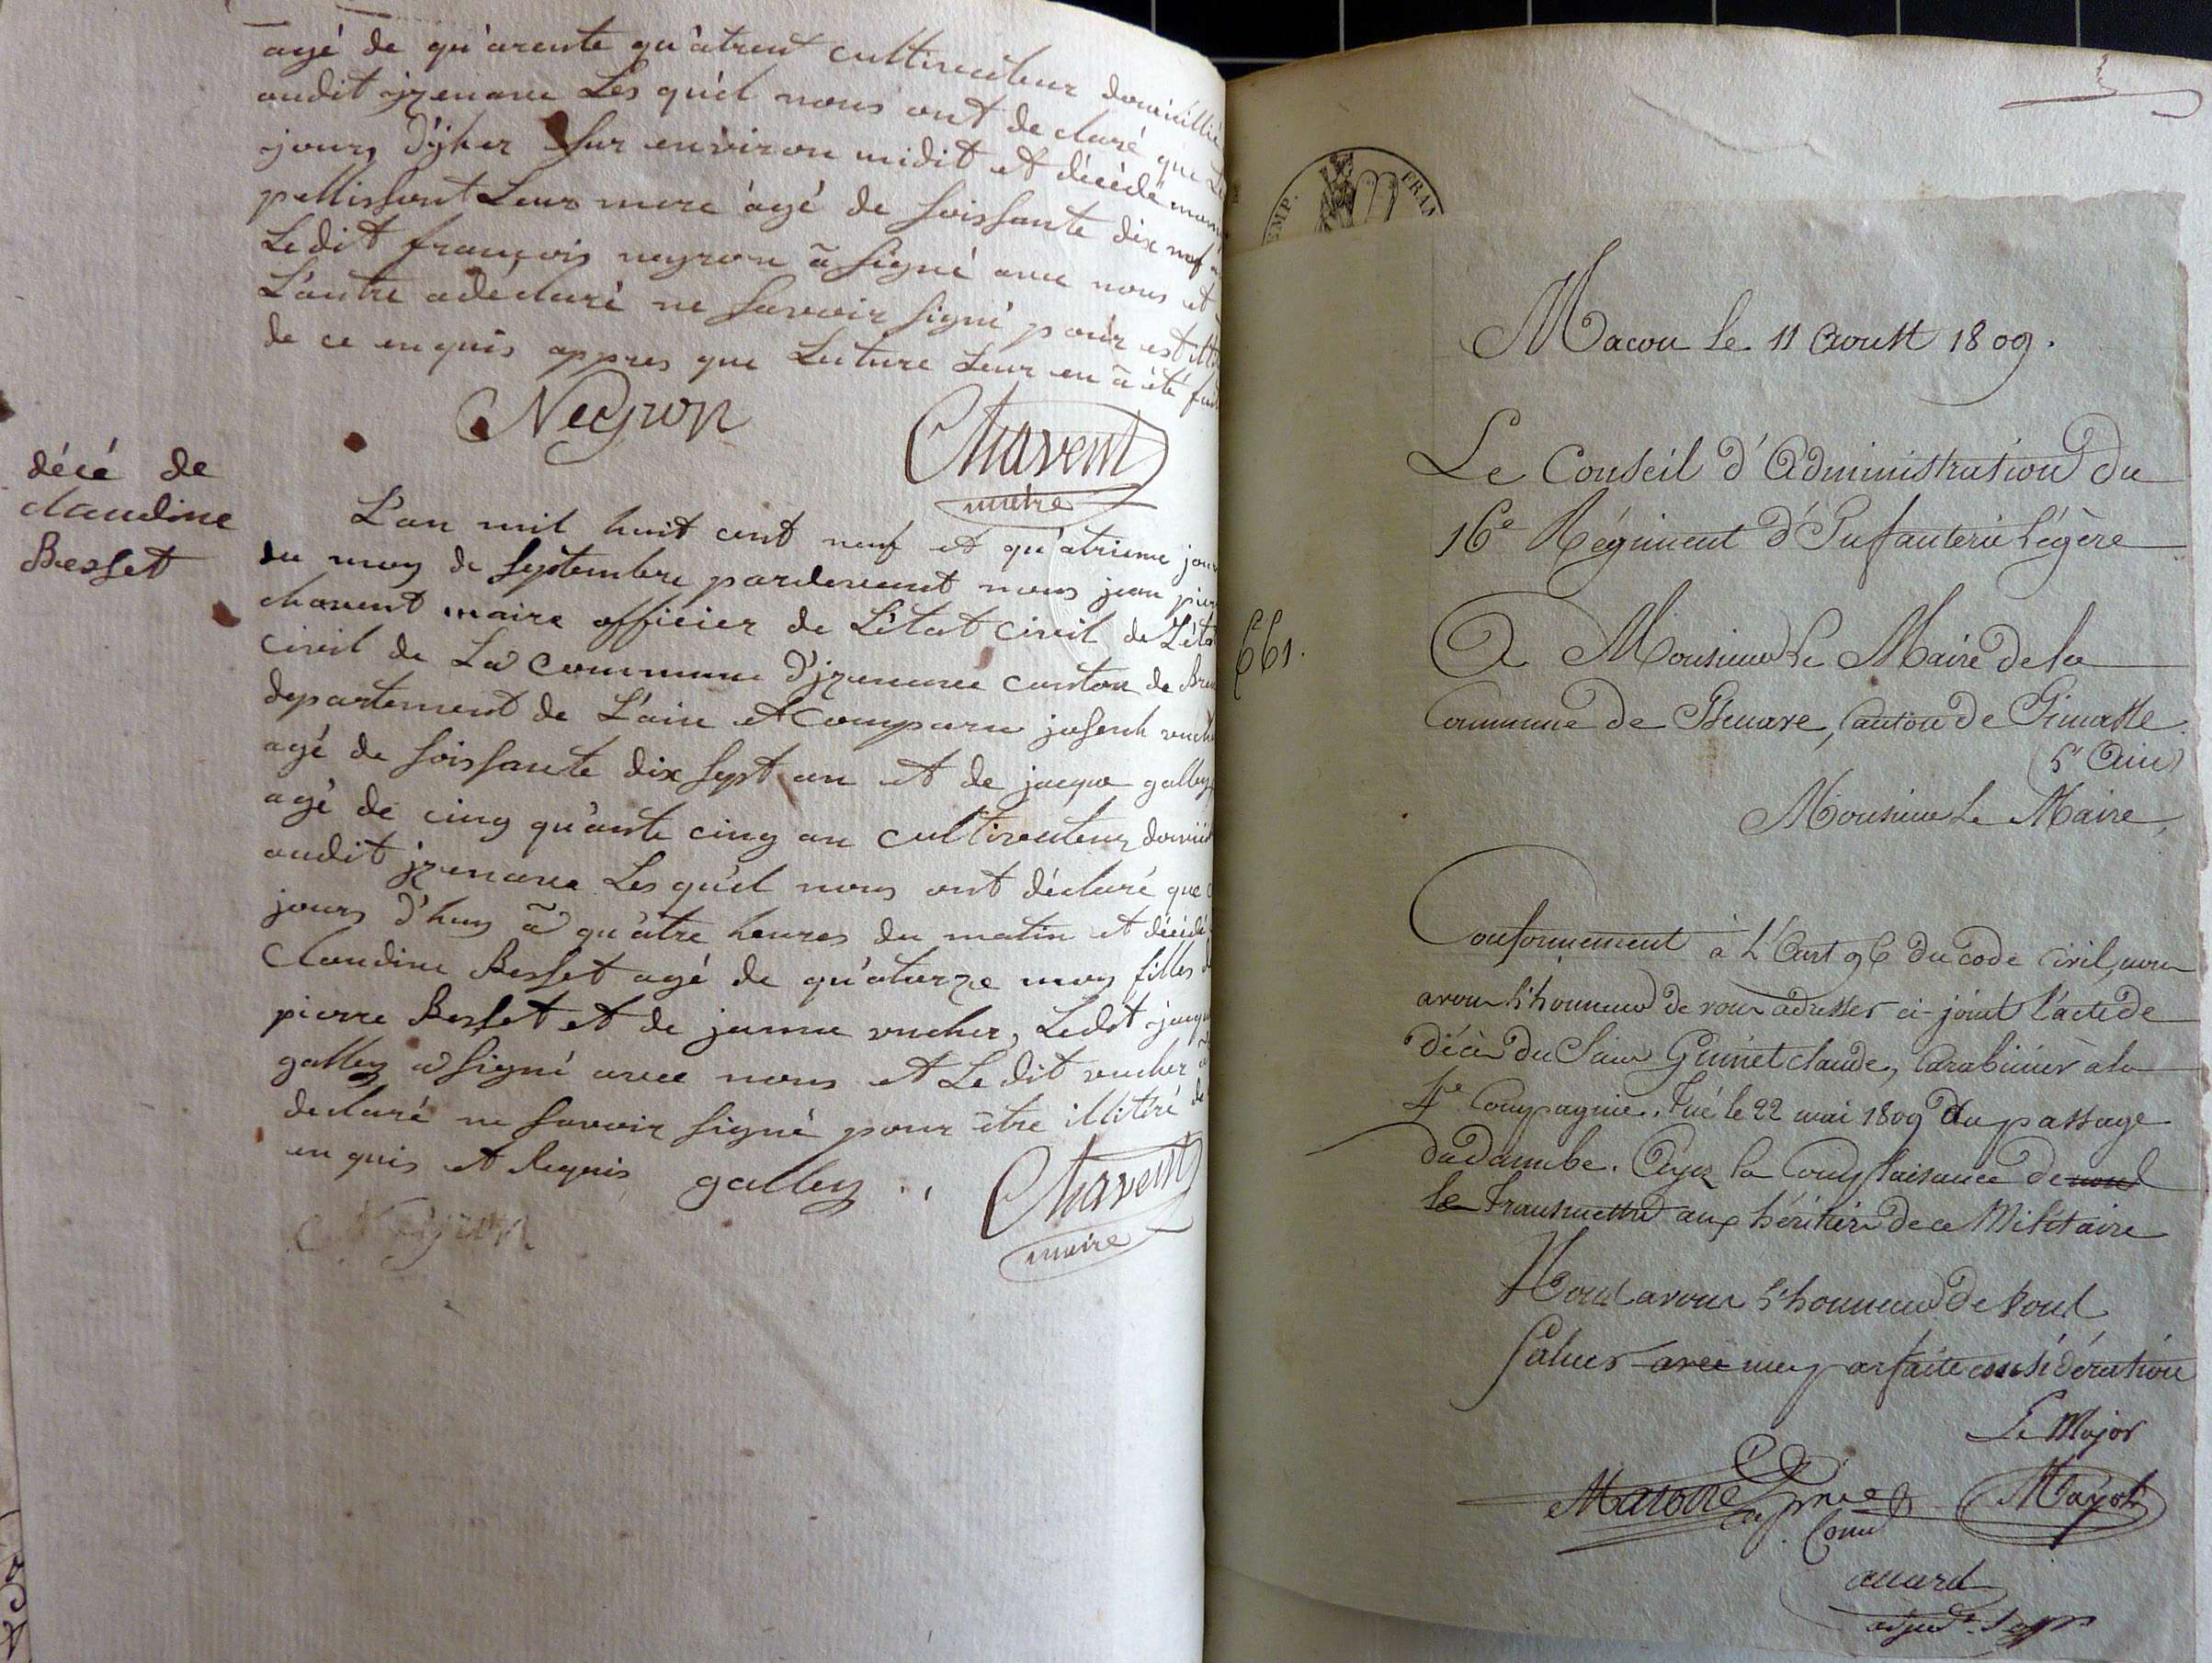 agé de qu'arente qu'atreut cultivateur domicillié
audit jzenave Les qu'el nous ont declaré que Le
jours d'yher sur environ midit et décédé
pellissont Leur mere âgé de soissante dix nef
Ledit françois neyron ã signé avec nous et
L'autre adeclaré ne savoir signé pour est
de ce enquis appres que Luture Leur en ã été
Neyron
Chavent
maire
décé de
claudine
Besset
L'an mil huit cent neuf et qu'atrieme jour
du moy de septembre pardevant nous jean
chavent maire officier de L'état civil de L'état
civil de La commune d'jzenave canton de
departement de L'ain et Comparu joseph
agé de soissante dix sept an et de jacque galley
agé de cinq qu'ante cinq an cultivateur
audit jzenave Les qu'el nous ont déclaré que
jours d'huy ã qu'atre heures du matin et décédé
Claudine Besset agé de qu'atorze moy filles
pierre Besset et de janne vucher, Ledit
galley a signé avec nous et Le dit vucher
declaré ne savoir signé pour être illitéré de
en quis et Requis galley
Chavent
maire
Neyron
EMP. FRAN
661.
Macon le 11 Aoust 1809.
Le Conseil d'Administration du
16e Régiment d'Infanterie Légère
A Monsieur Le Maire de la
Commune de Isenave, Canton de
(L'Ain)
Monsieur Le Maire,
Conformement à L'Art 96 du Code Civil, nous
avons L'honneur de vous adresser ci-joint L'acte de
décès du Sieur Guinet claude, Carabinier à la
4e Compagnie. Tué le 22 mai 1809 Au passage
du Danube. Ayez la Complaisance de nous
le transmettre aux héritiers de ce Militaire
Nous avons L'honneur de Vous
Saluer avec une parfaite considération
Le Major